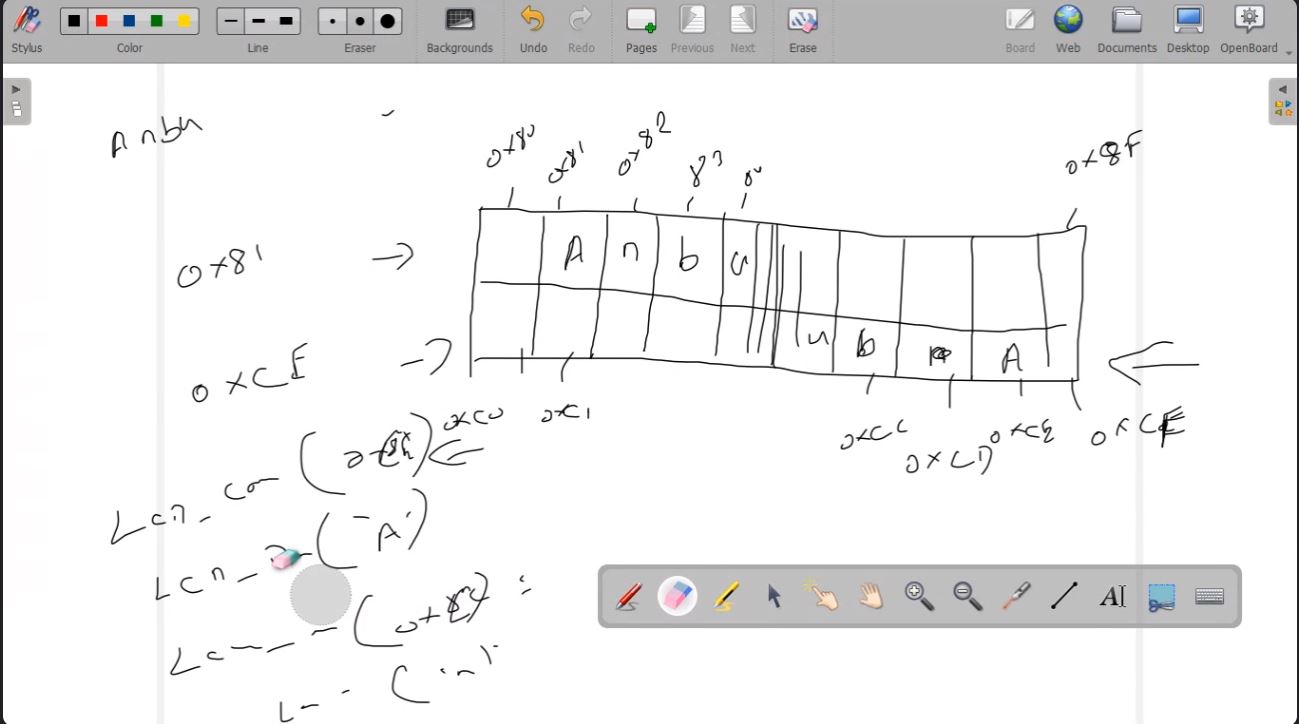 Stylus
Color
Line
Eraser
Backgrounds
Undo
Redo
Pages
Previous
Next
Erase
Board
Web
Documents
Desktop
OpenBoard
Anbu
0x80
0x81
0x82
83
0x8F
0x81
A n b u
0xCE
u b A
0xC0
0xC1
0xCC
0xCD
0xCE
0xCF
LCD
('A')
LCD
('n')
AI